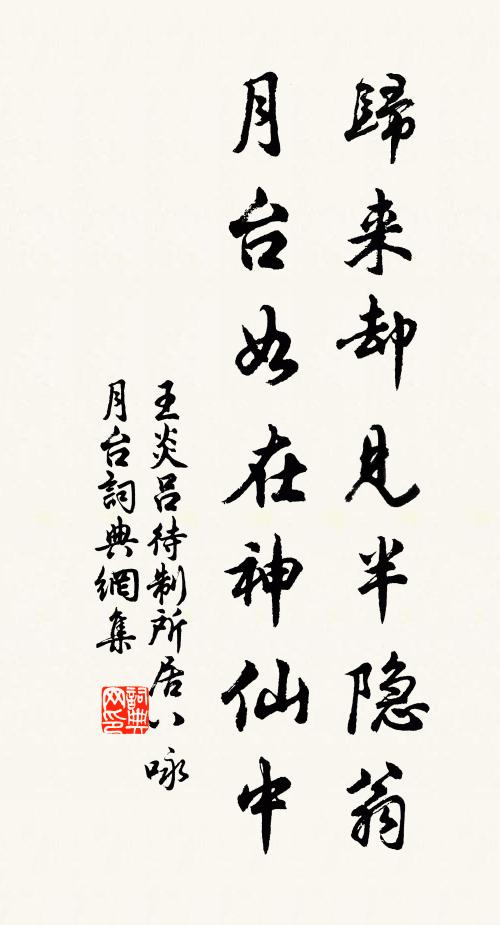 歸来却見半隐翁
月台如在神仙中
王炎吕待制所居八咏
月台詞典網集
詞典網印